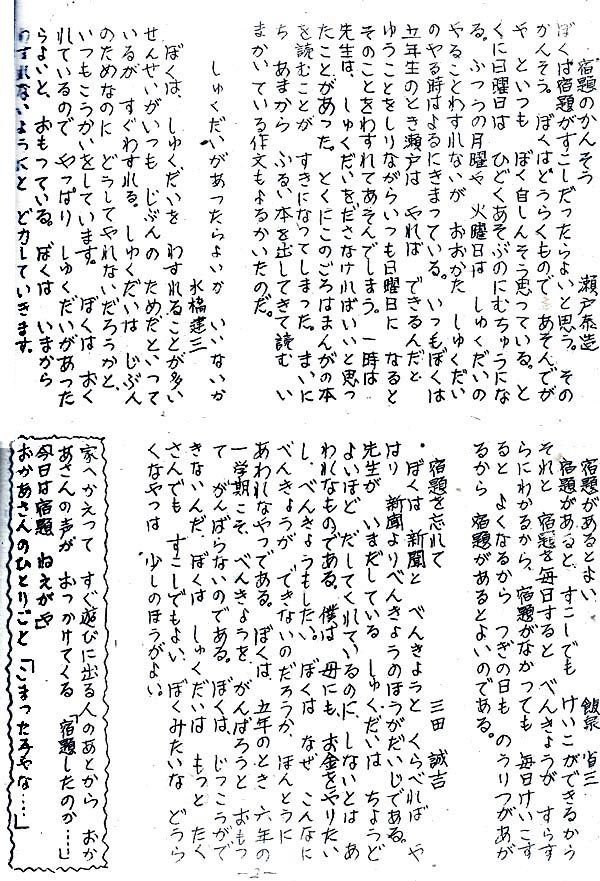 宿題のかんそう　瀬戸泰造
ぼくは宿題がすこしだったらよいと思う。その
かんそう。ぼくはどうらくもので、あそんでが
や といつも ぼく自しんそう思っている。と
くに日曜日は ひどくあそぶのにむちゅうにな
る。ふつうの月曜や 火曜日は しゅくだいの
やることわすれないが おおかた しゅくだい
のやる時はよるにきまっている。いつもぼくは
五年生のとき瀬戸は やれば できるんだと
ゆうことをしりながらいつも日曜日に なると
そのことをわすれてあそんでしまう。一時は
先生は、しゅくだいをださなければいいと思っ
たことがあった。とくにこのごろはまんがの本
を読むことが すきになってしまった。まいに
ち あまから ふるい本を出してきて読む い
まかいている作文もよるかいたのだ。
しゅくだいがあったらよいか いいないか
水橋建三
ぼくは、しゅくだいを わすれることが多い
せんせいがいつも じぶんの ためだといって
いるが すぐわすれる。しゅくだいは じぶん
のためなのに どうしてやれないだろうかと、
いつもこうかいをしています。ぼくは おく
れているので やっぱり しゅくだいがあった
らよいと、おもっている。ぼくは いまから
わすれないようにと ど力していきます。
宿題があるとよい、　飯泉 省三
宿題があると、すこしでも けいこができるから
それと 宿題を毎日すると べんきょうが すらす
らにわかるから、宿題がなかっても 毎日けいこす
ると よくなるから つぎの日も のうりつがあが
るから 宿題があるとよいのである。
宿題を忘れて　三田 誠吉
・ぼくは 新聞と べんきょうと くらべれば や
はり 新聞よりべんきょうのほうがだいじである。
先生が いまだしている しゅくだいは ちょうど
よいほど だしてくれているのに、しないとは あ
われなものである。僕は 母にも お金をやりたい
し、べんきょうもしたい。ぼくは なぜ こんなに
べんきょうが できないのだろうか、ほんとうに
あわれなやつである。ぼくは、五年のとき 六年の
一学期こそ、べんきょうを、がんばろうと おもっ
て がんばらないのである。ぼくは、じっこうがで
きないんだ、ぼくは しゅくだいは もっと たく
さんでも すこしでもよい、ぼくみたいな どうら
くなやつは 少しのほうがよい。
家へかえって すぐ遊びに出る人のあとから おか
あさんの声が おっかけてくる 「宿題したのか…」
今日は宿題 ねえがや
おかあさんのひとりごと 「こまったみやな……」
-2-